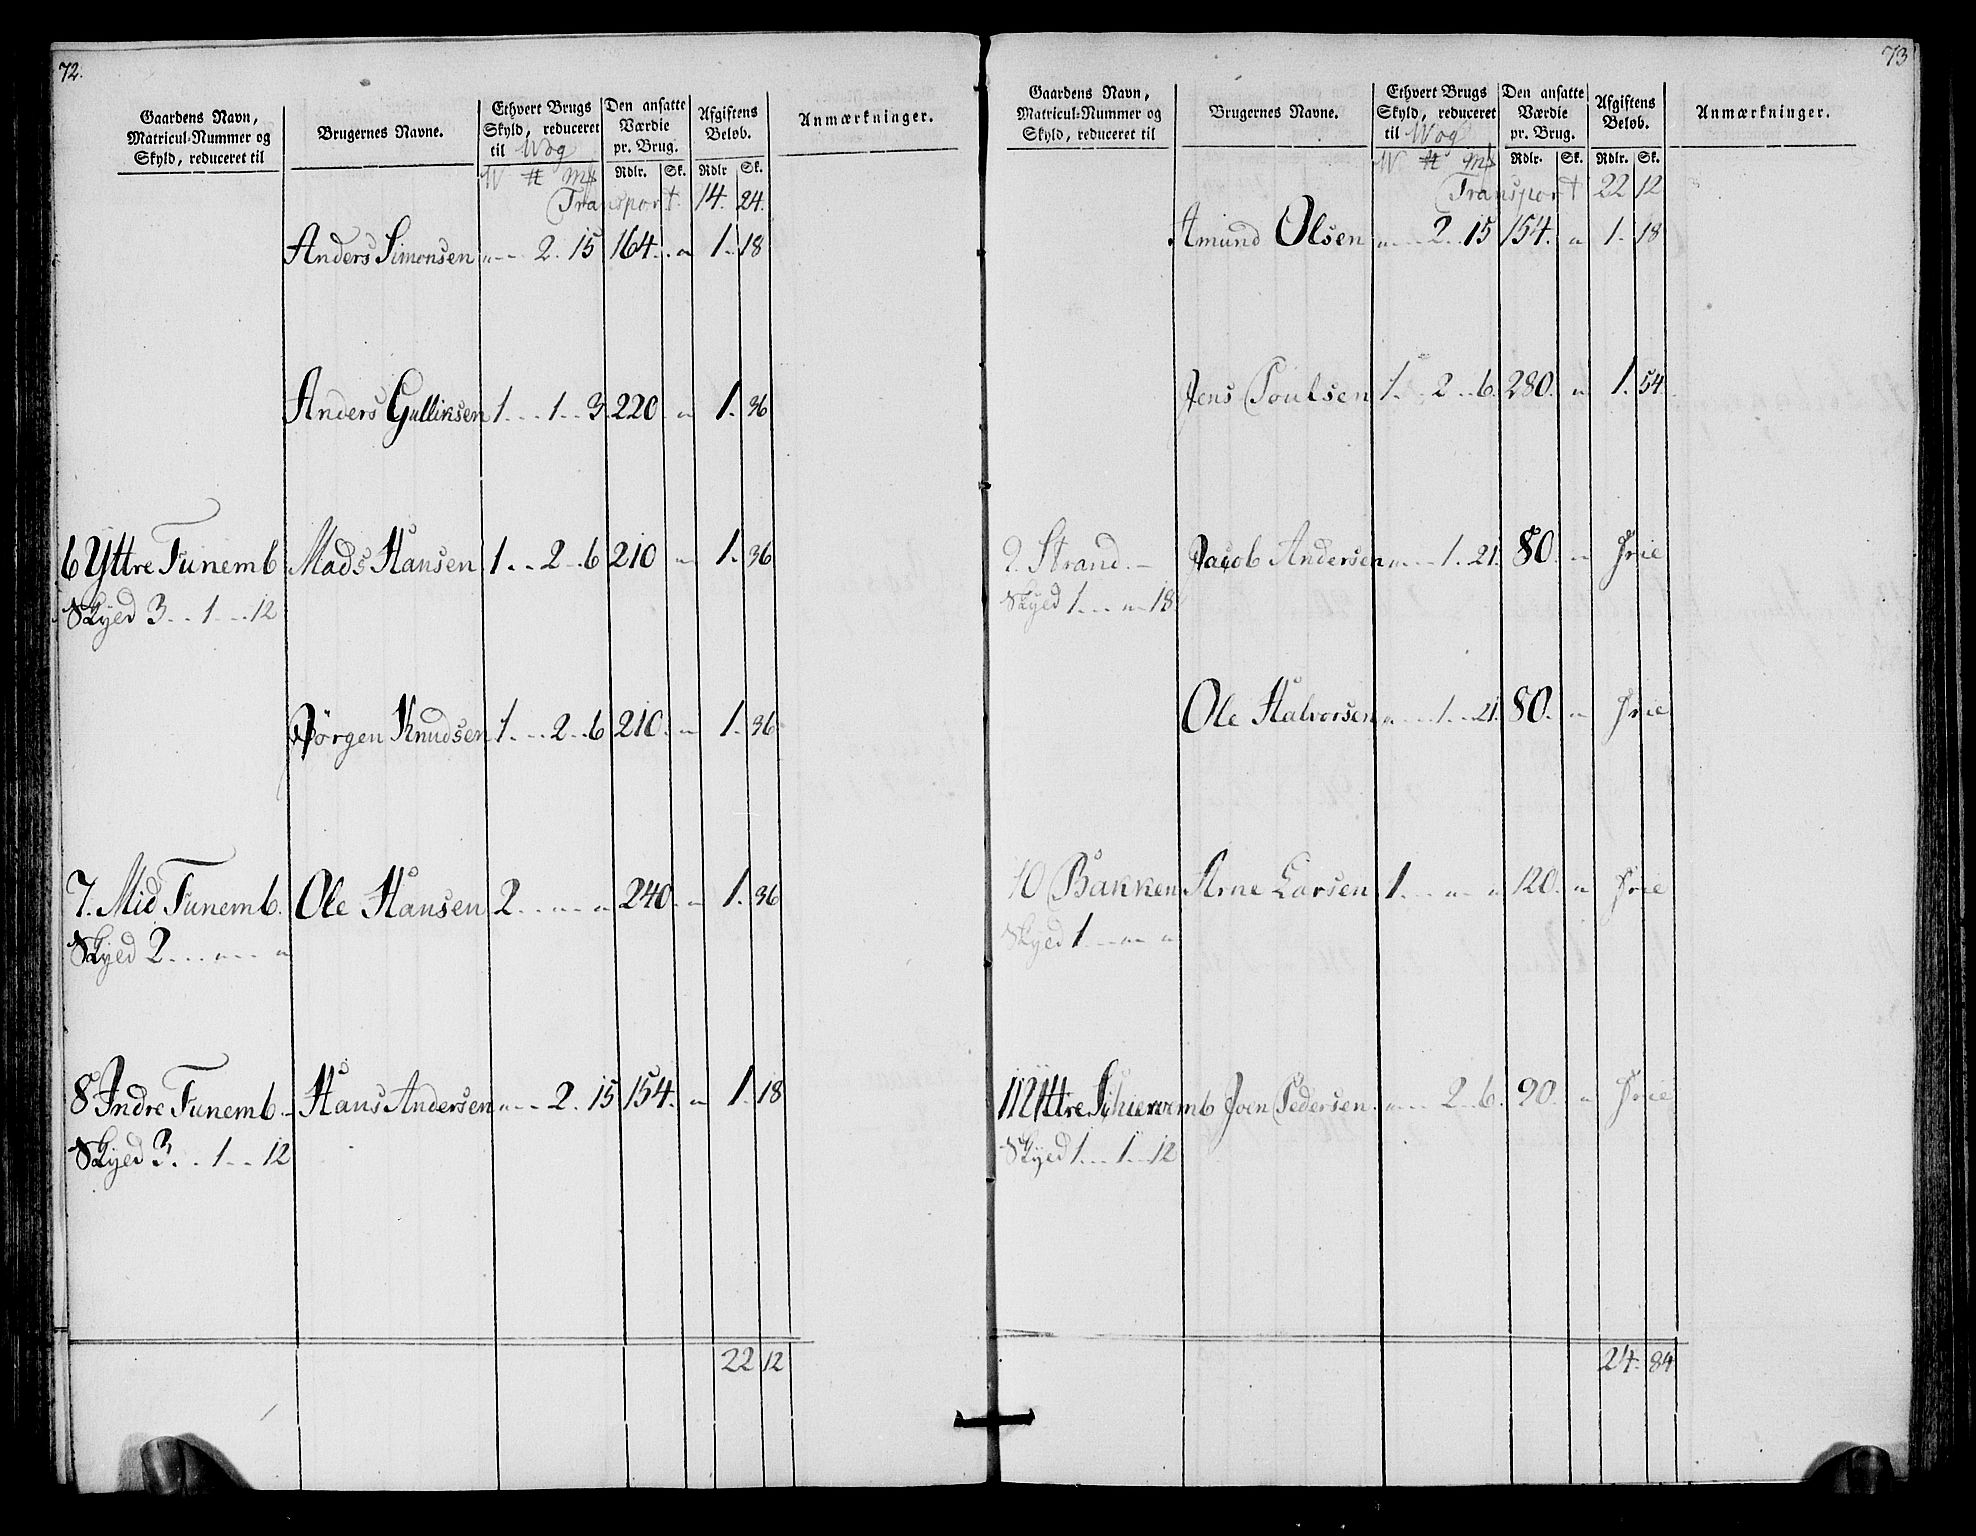 72.
Gaardens Navn, Matricul-Nummer og Skyld, reduceret til
Brugernes Navne.
Ethvert Brugs Skyld, reduceret til Wog
Den ansatte Værdie pr. Brug.
Afgiftens Beløb.
Anmærkninger.
W ℔ Mk Rdlr. Sk. Rdlr Sk.
Transport 14. 24.
Anders Simonsen „ - - 2. 15 164. „ 1. 18
Anders Gulliksen 1. . . 1 . . 3. 220. „ 1. 36
6 Yttre Tunemb Mads Hansen 1. . . 2 . . 6 210 „ 1. 36
Skyed 3. . . 1 . . . 12
Jörgen Knudsen 1. . . 2 . . 6 210. „ 1. 36
7. Mid Tunemb. Ole Hansen 2 . . „ . . „ 240. „ 1. 36
Skyed 2 . . . „ . . „
8 Indre Tunemb. Hans Andersen „ . . 2. 15 154. „ 1. 18
Skyed 3. . . 1 . . . 12
22 12
73
Gaardens Navn, Matricul-Nummer og Skyld, reduceret til
Brugernes Navne.
Ethvert Brugs Skyld, reduceret til Wog
Den ansatte Værdie pr. Brug.
Afgiftens Beløb.
Anmærkninger.
W ℔ Mk Rdlr. Sk. Rdlr. Sk.
Transport 22 12
Amund Olsen „ . . . 2. . 15 154. „ 1. 18
Jens Poulsen 1. . . 2 . . 6. 280. „ 1. 54
9. Strand. Jacob Andersen „ . . . 1. . 21. 80. „ Frie
Skyed 1 . . . „ . . 18
Ole Halvorsen „ . . . 1 . . 21. 80. „ Frie
10 Bakken Arne Larsen 1. . . „ . . „ 120. „ Frie
Skyed 1 . . . „ . . „
11 Yttre Schiervemb Joen Pedersen. „ . . . 2 . . 6. 90. „ Frie
Skyed 1 . . . 1 . . . 12
24. 84